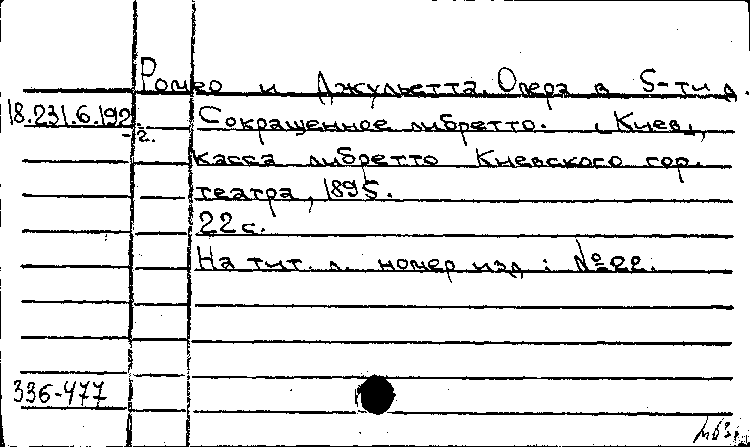 Ромео и Джульетта. Опера в 5-ти д.
18.231.6.192 Сокращенное либретто. [Киев],
-2.
касса либретто Киевского гор.
театра, 1895.
22 с.
На тит. л. номер изд: №22.
336-477